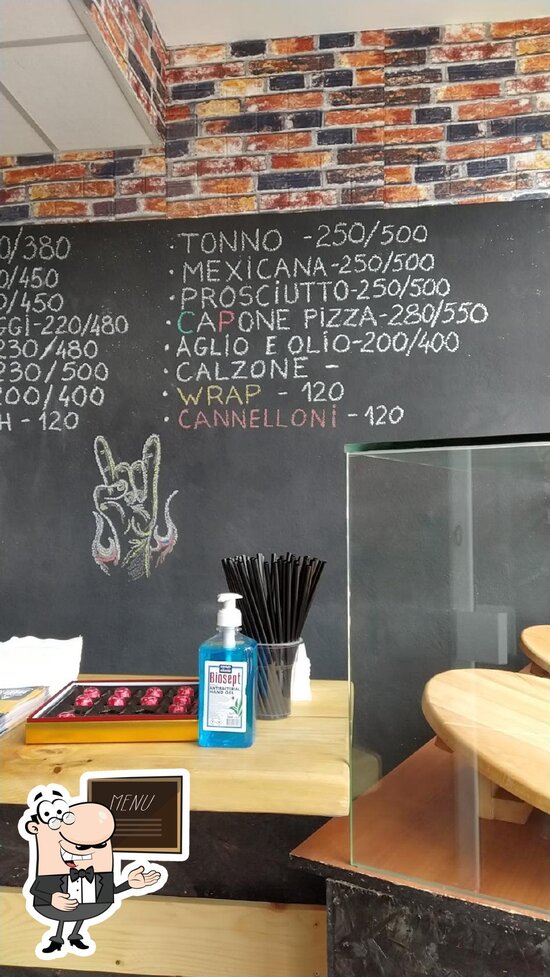 0/380
0/450
0/450
GGI-220/480
230/480
230/500
200/400
H - 120
· TONNO -250/500
· MEXICANA-250/500
· PROSCIUTTO-250/500
· CAPONE PIZZA-280/550
· AGLIO E OLIO-200/400
· CALZONE -
· WRAP - 120
· CANNELLONI -120
Biosept
ANTIBACTERIAL
HAND GEL
MENU